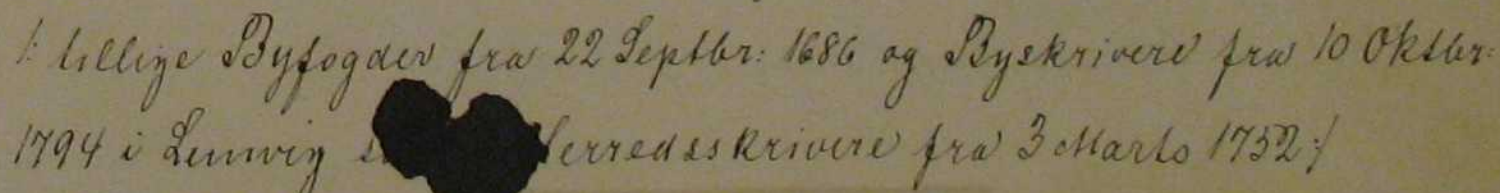 /: tillige Byfogder fra 22 Septbr: 1686 og Byskrivere fra 10 Oktbr:
1794 i Lemvig Herredsskrivere fra 3 Marts 1752 :/